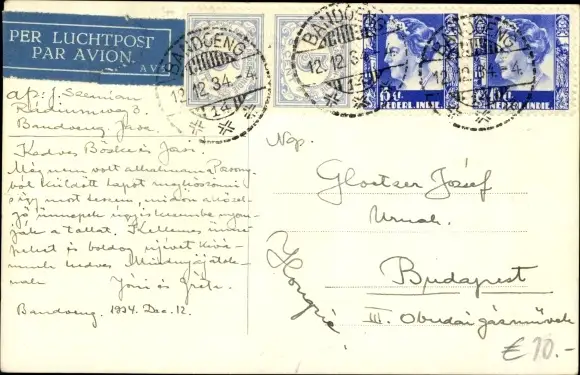 PER LUCHTPOST
PAR AVION.
BANDOENG
12.12.34.-4
BANDOENG
12.12
NEDERL. INDIË.
NEDERL. INDIË.
afz: J.
3.
Bandoeng Java.
Kedves Böske és Jósi.
Még nem volt alkalmam
ból küldött lapot megköszönni
s így most teszem, midőn a közel-
gő ünnepek úgyis kezembe nyom-
ják a tollat. Kellemes ünne-
peket és boldog újévet kívá-
nunk kedves Mindnyájatok-
nak
Jóni és Gréta.
Bandoeng. 1934. Dec. 12.
Ngs.
Gloetzer József
Urnak.
Budapest
III. Obudai gázművek
Hongrie
€ 10.-